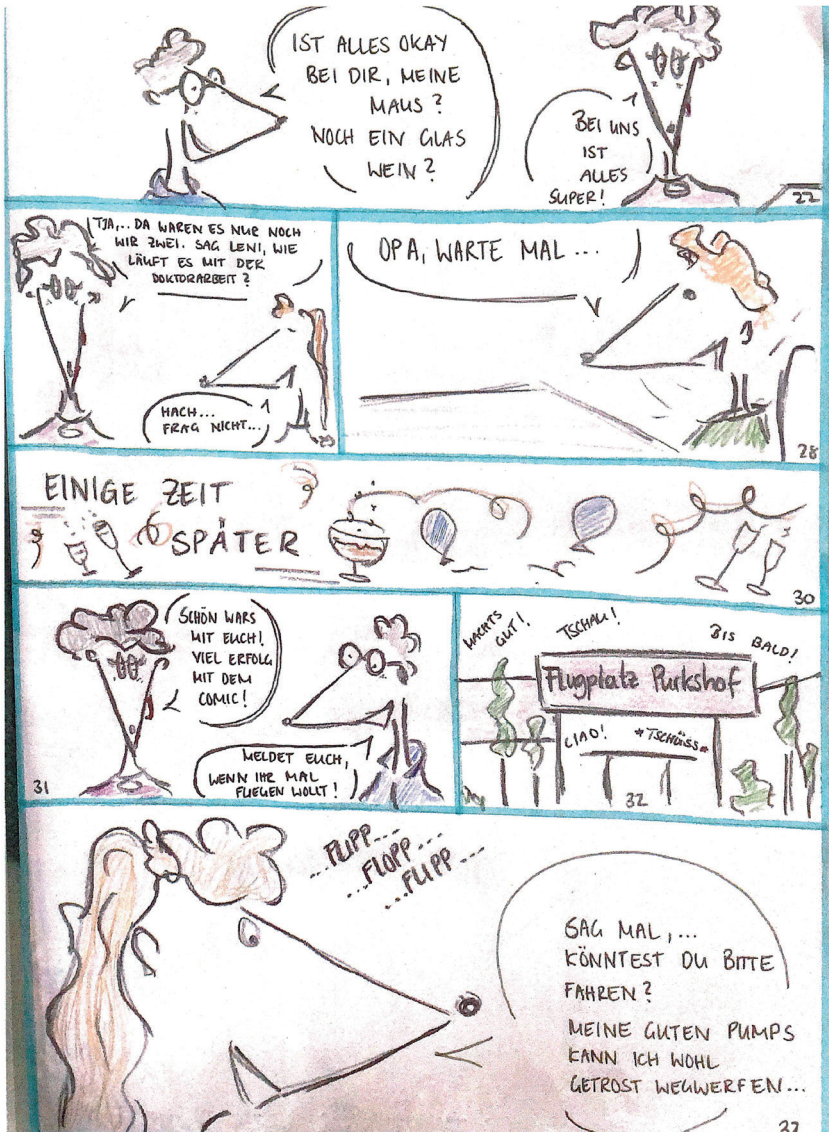 IST ALLES OKAY
BEI DIR, MEINE
MAUS?
NOCH EIN GLAS
WEIN?
BEI UNS
IST
ALLES
SUPER!
22
TJA,.. DA WAREN ES NUR NOCH
WIR ZWEI. SAG LENI, WIE
LÄUFT ES MIT DER
DOKTORARBEIT?
HACH...
FRAG NICHT...
OPA, WARTE MAL...
28
EINIGE ZEIT
SPÄTER
30
SCHÖN WARS
MIT EUCH!
VIEL ERFOLG
MIT DEM
COMIC!
MELDET EUCH,
WENN IHR MAL
FLIEGEN WOLLT!
31
MACHTS
GUT!
TSCHAU!
BIS BALD!
Flugplatz Purkshof
CIAO!
*TSCHÜSS*
32
...FLIPP...
...FLOPP...
...FLIPP...
SAG MAL,...
KÖNNTEST DU BITTE
FAHREN?
MEINE GUTEN PUMPS
KANN ICH WOHL
GETROST WEGWERFEN...